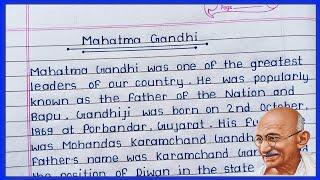 Page
Mahatma Gandhi
Mahatma Gandhi was one of the greatest
leaders of our country. He was popularly
known as the father of the Nation and
Bapu. Gandhiji was born on 2nd October,
1869 at Porbandar, Gujarat. His
was Mohandas Karamchand Gandhi
fathers name was Karamchand
the position of Diwan in the state